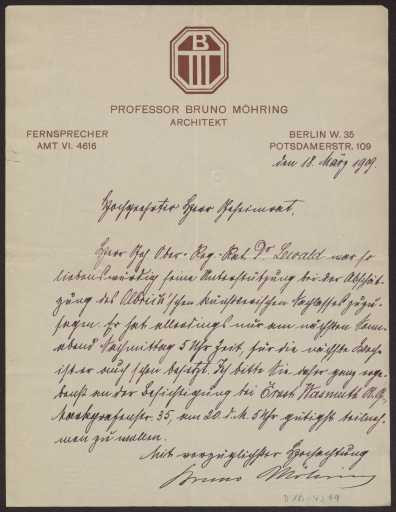 B
PROFESSOR BRUNO MÖHRING
ARCHITEKT
FERNSPRECHER
AMT VI. 4616
BERLIN W. 35
POTSDAMERSTR. 109
den 18. März 1909.
Hochgeehrter Herr Geheimrat.
Herr Geh. Ober-Reg.-Rat Dr Lewald war so
liebenswürdig seine Unterstützung bei der Abschät-
zung des Olbrich'schen künstlerischen Nachlasses zuzu-
sagen. Er hat allerdings nur am nächsten Sonn-
abend Nachmittag 5 Uhr Zeit, für die nächste Woche
ist er auch schon besetzt. Ich bitte Sie daher ganz erge-
benst an der Besichtigung bei Ernst Wasmuth A.G.
Markgrafenstr. 35, am 20. d. M. 5 Uhr gütigst teilneh-
men zu wollen.
Mit vorzüglichster Hochachtung
Bruno Möhring